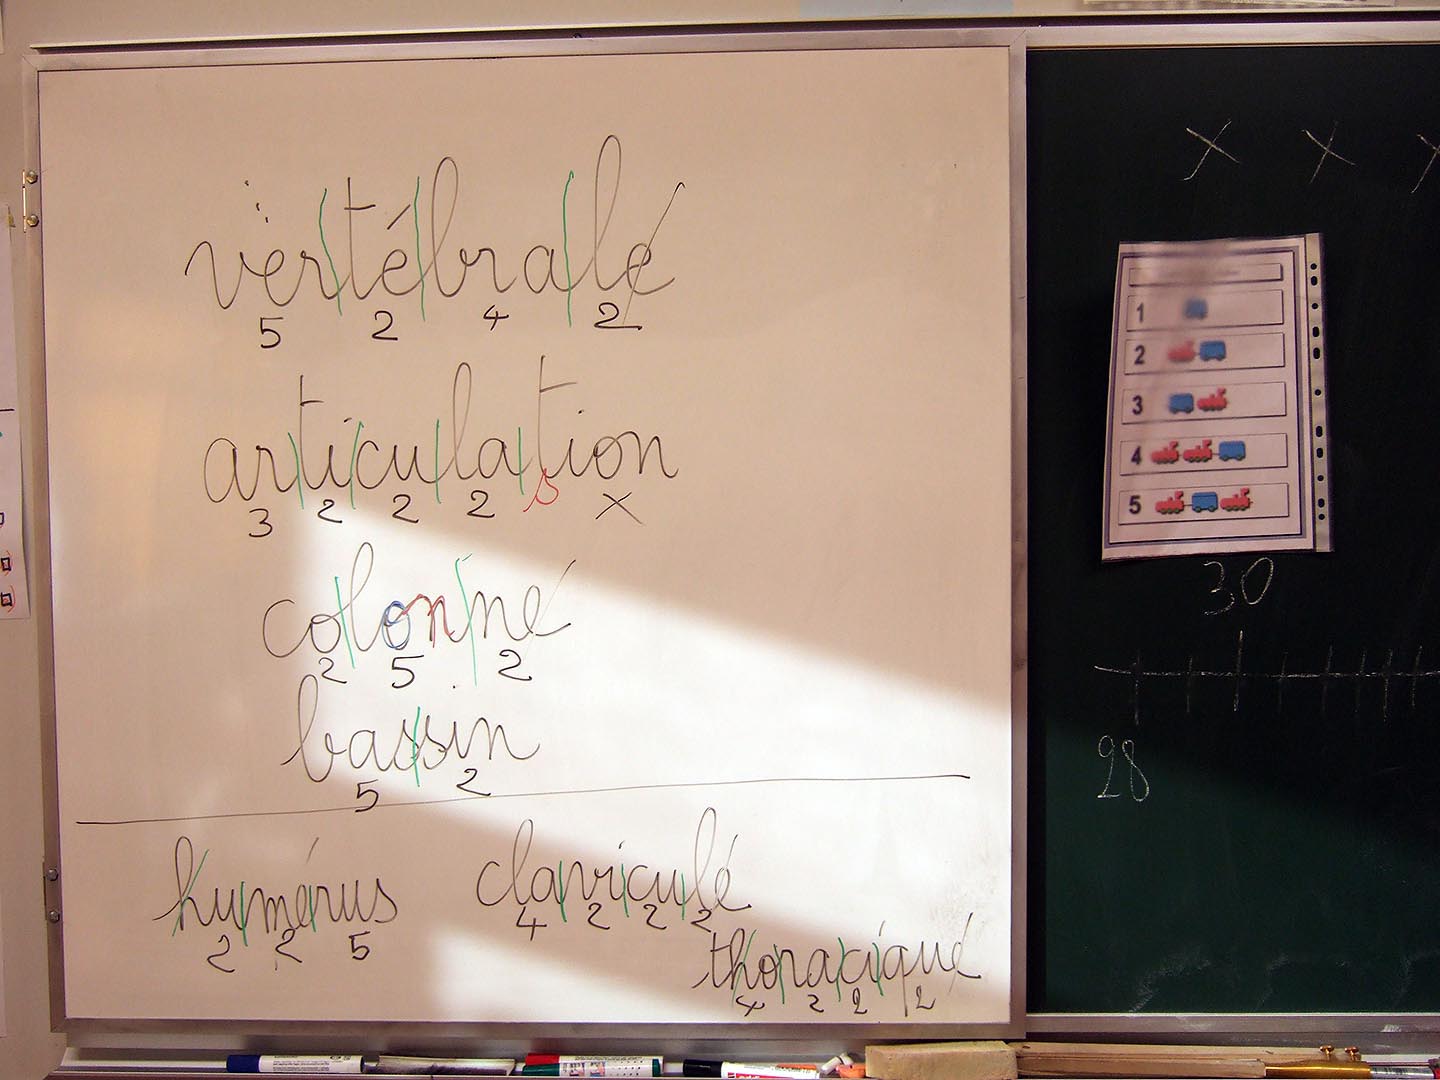 vertébrale
5 2 4 2
articulation
3 2 2 2 s x
colonne
2 5 2
bassin
5 2
humérus
2 2 5
clavicule
4 2 2 2
thoracique
4 2 2 2
x x x
1
2
3
4
5
30
28